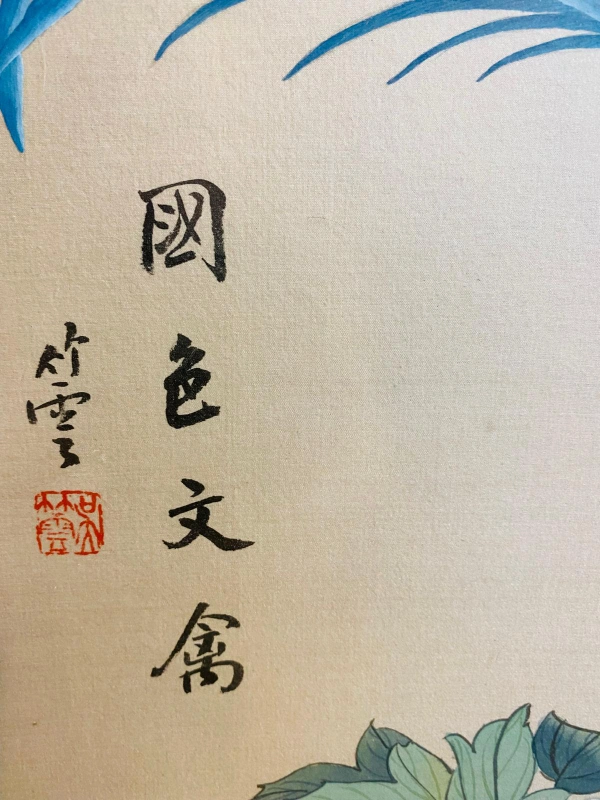 國色文禽
竹雲